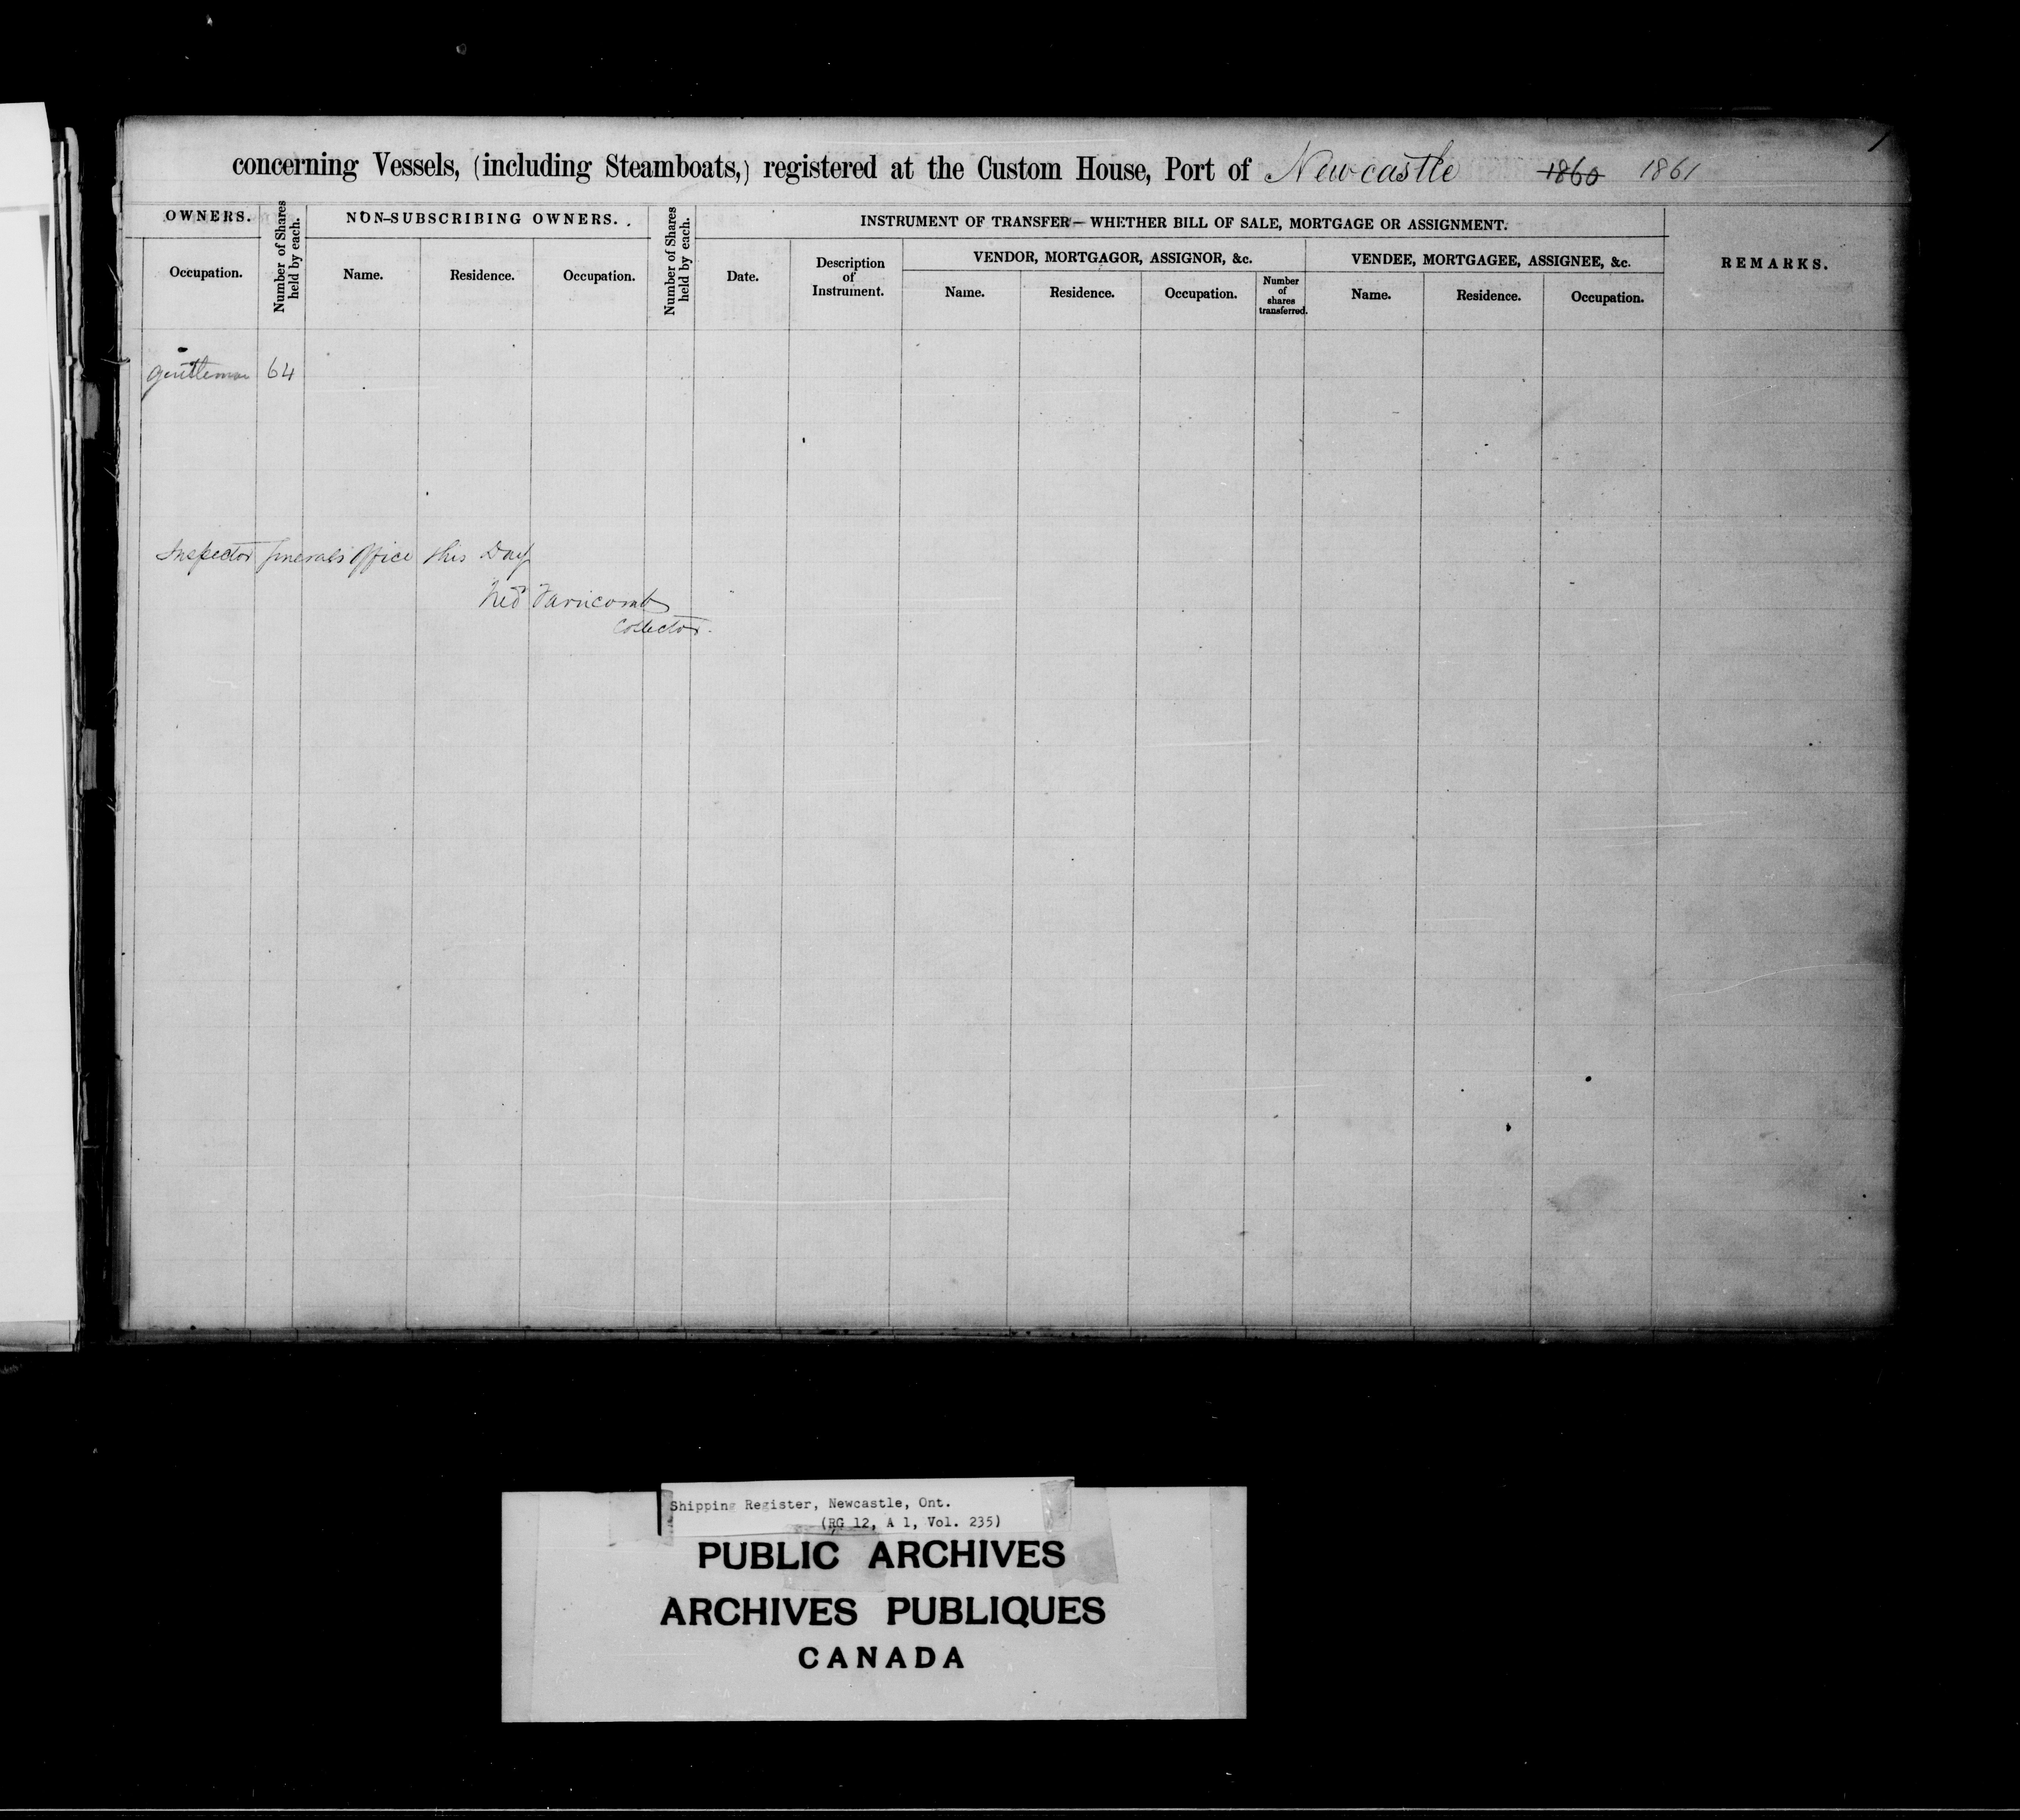 1
concerning Vessels, (including Steamboats,) registered at the Custom House, Port of Newcastle 1860 1861
OWNERS.
Occupation.
Number of Shares held by each.
NON-SUBSCRIBING OWNERS.
Name. Residence. Occupation.
Number of Shares held by each.
INSTRUMENT OF TRANSFER—WHETHER BILL OF SALE, MORTGAGE OR ASSIGNMENT.
Date.
Description
of
Instrument.
VENDOR, MORTGAGOR, ASSIGNOR, &c.
Name. Residence. Occupation.
Number
of
shares
transferred.
VENDEE, MORTGAGEE, ASSIGNEE, &c.
Name. Residence. Occupation.
REMARKS.
Gentleman 64
Inspector Generals Office this Day
Farncomb
Collector.
Shipping Register, Newcastle, Ont.
(RG 12, A 1, Vol. 235)
PUBLIC ARCHIVES
ARCHIVES PUBLIQUES
CANADA